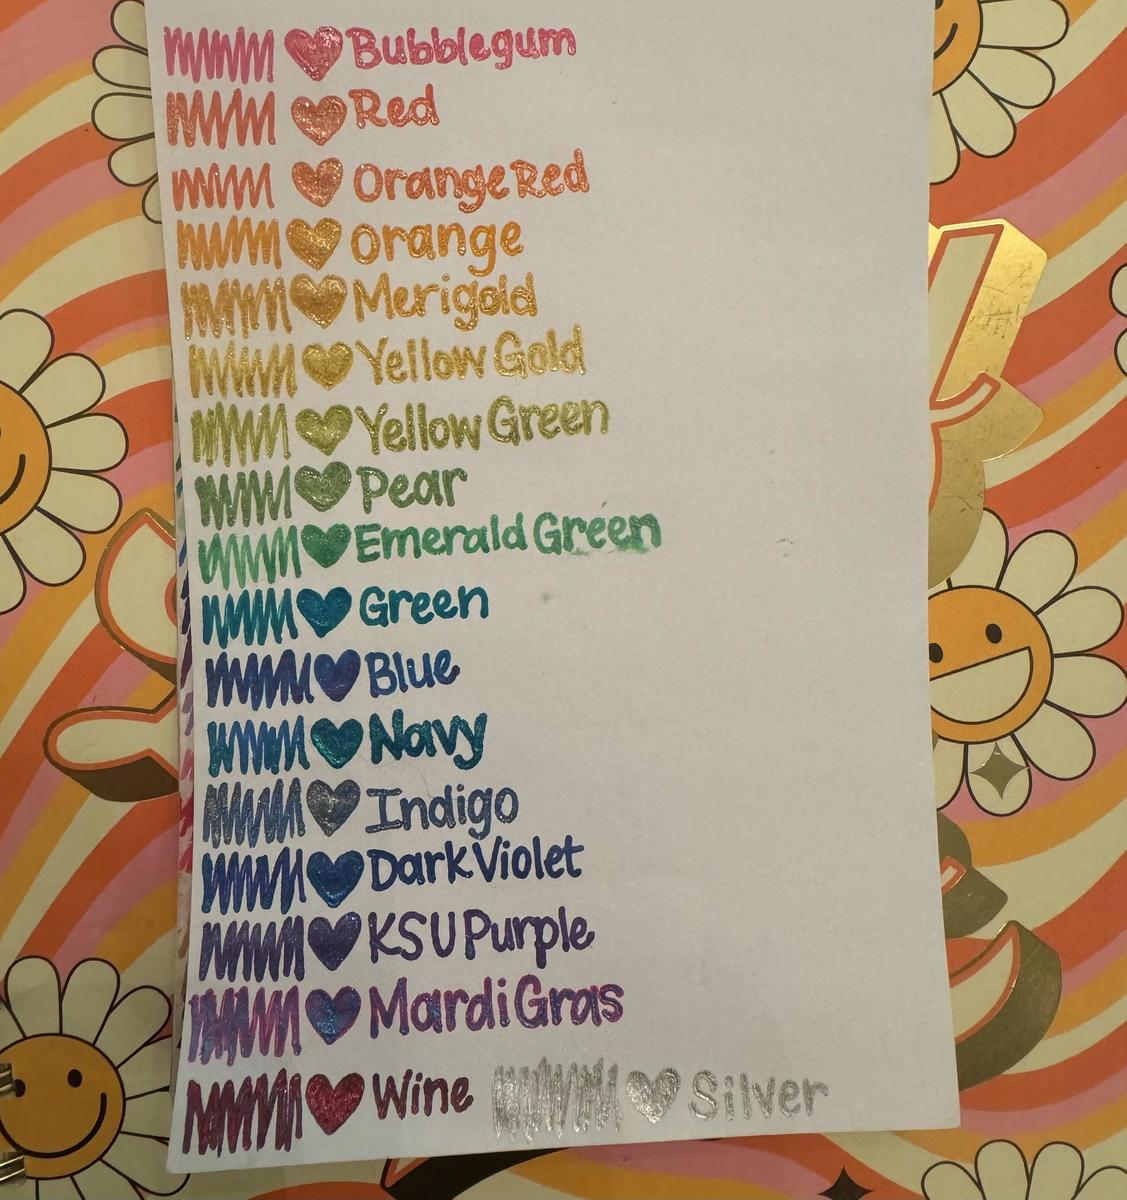 Bubblegum
Red
Orange Red
Orange
Merigold
Yellow Gold
Yellow Green
Pear
Emerald Green
Green
Blue
Navy
Indigo
Dark Violet
KSU Purple
Mardi Gras
Wine Silver